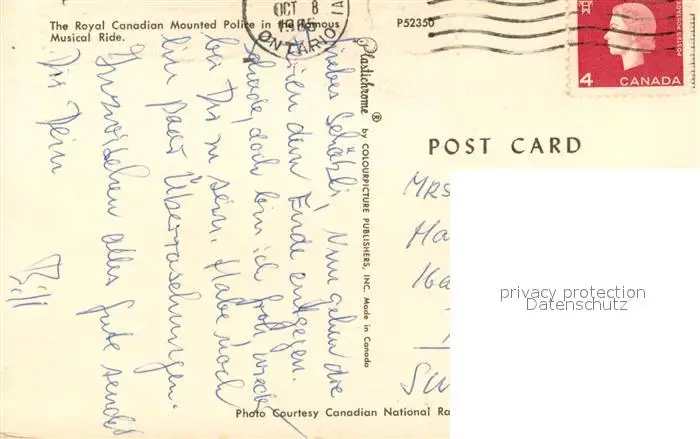 The Royal Canadian Mounted Police in the famous
Musical Ride.
OCT 8
1965
ONTARIO
P52350
4 CANADA
POSTES POSTAGE
Plastichrome ® by COLOURPICTURE PUBLISHERS, INC. Made in Canada
POST CARD
Liebes Schätzli, Nun gehen die
Ferien dem Ende entgegen.
Schade, doch bin ich froh wieder
bei Dir zu sein. Habe noch
ein paar Überraschungen.
Inzwischen alles Gute sendet
Dir Dein
Bill
MRS
Ha
16a
SW
privacy protection
Datenschutz
Photo Courtesy Canadian National Ra